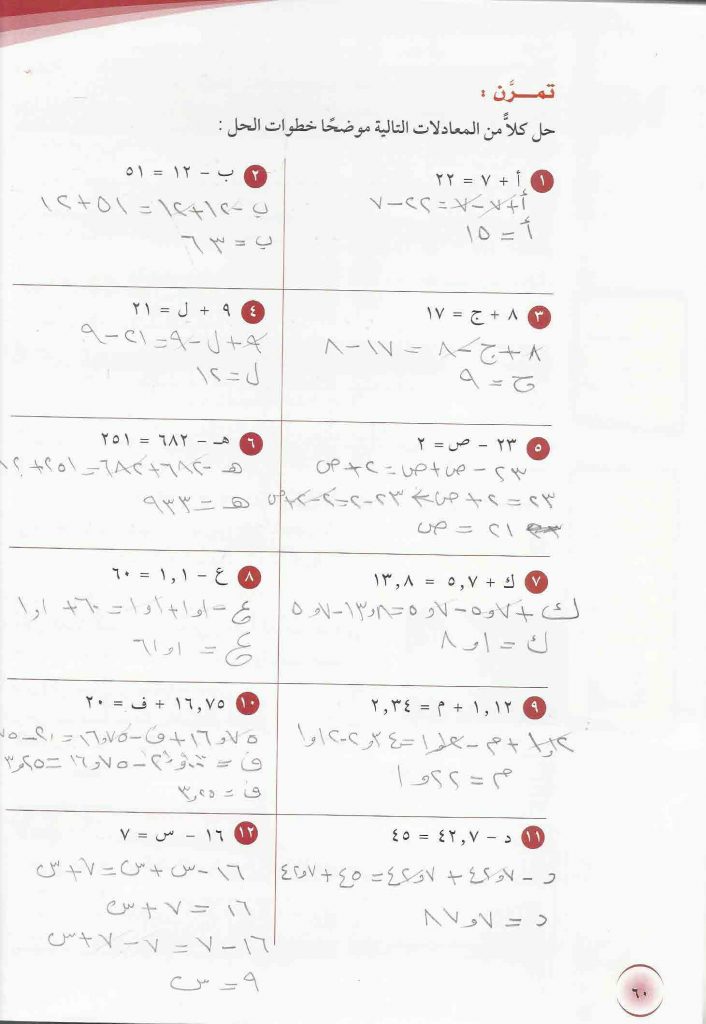 تمـــرَّن :
حل كلاًّ من المعادلات التالية موضحًا خطوات الحل :
١ أ + ٧ = ٢٢
أ + ٧ - ٧ = ٢٢ - ٧
أ = ١٥
٢ ب - ١٢ = ٥١
ب - ١٢ + ١٢ = ٥١ + ١٢
ب = ٦٣
٣ ٨ + ج = ١٧
٨ + ج - ٨ = ١٧ - ٨
ج = ٩
٤ ٩ + ل = ٢١
٩ + ل - ٩ = ٢١ - ٩
ل = ١٢
٥ ٢٣ - ص = ٢
٢٣ - ص + ص = ٢ + ص
٢٣ = ٢ + ص ← ٢٣ - ٢ = ٢ - ٢ + ص
٢١ = ص
٦ هـ - ٦٨٢ = ٢٥١
هـ - ٦٨٢ + ٦٨٢ = ٢٥١ +
هـ = ٩٣٣
٧ ك + ٥,٧ = ١٣,٨
ك + ٥,٧ - ٥,٧ = ١٣,٨ - ٥,٧
ك = ٨,١
٨ ع - ١,١ = ٦٠
ع - ١,١ + ١,١ = ٦٠ + ١,١
ع = ٦١,١
٩ ١,١٢ + م = ٢,٣٤
١,١٢ + م - ١,١٢ = ٢,٣٤ - ١,١٢
م = ١,٢٢
١٠ ١٦,٧٥ + ف = ٢٠
١٦,٧٥ + ف - ١٦,٧٥ = ٢٠ -
ف = - ١٦,٧٥ = ٣,٢٥
ف = ٣,٢٥
١١ د - ٤٢,٧ = ٤٥
د - ٤٢,٧ + ٤٢,٧ = ٤٥ + ٤٢,٧
د = ٨٧,٧
١٢ ١٦ - س = ٧
١٦ - س + س = ٧ + س
١٦ = ٧ + س
١٦ - ٧ = ٧ - ٧ + س
٩ = س
٦٠